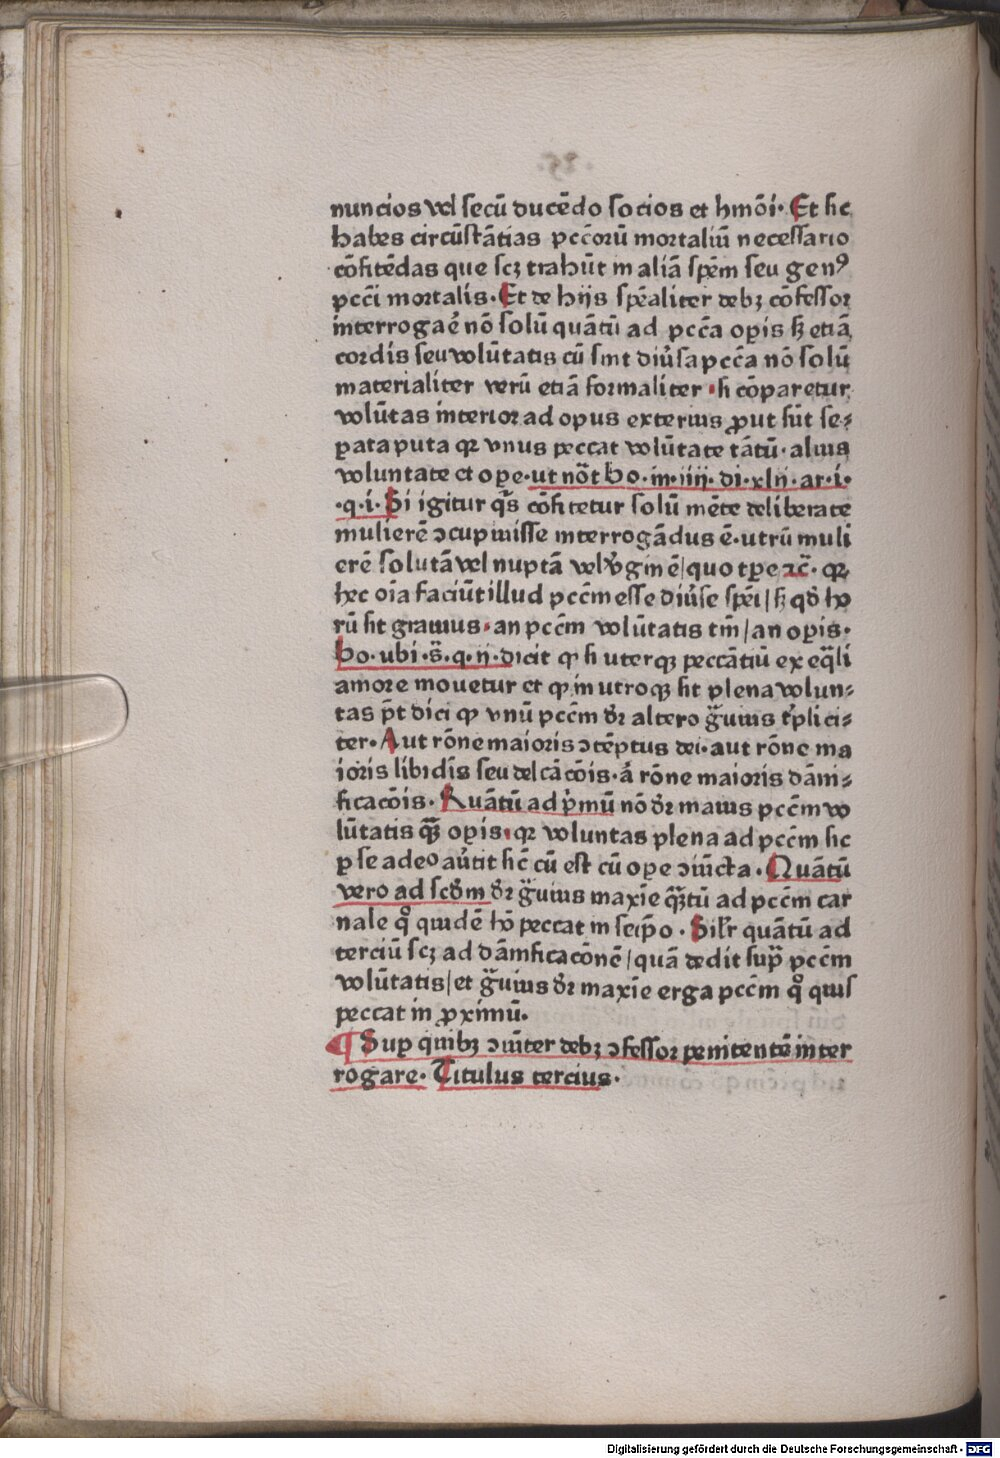 nuncios vel secū ducēdo socios et hmōi· Et sic
habes circūstātias pccorū mortaliū necessario
cōfitēdas que scꝫ trahūt in aliā spēm seu genꝰ
pccī mortalis· Et de hijs spēaliter debꝫ cōfessor
interrogaē nō solū quātū ad pccā oꝑis sꝫ etiā
cordis seu volūtatis cū sint diūsa pccā nō solū
materialiter verū etiā formaliter · si cōparetur
volūtas interior ad opus exterius ꝓut sūt se⸗
ꝑata puta qꝛ vnus peccat volūtate tātū· alius
voluntate et oꝑe· ut nōt bo· in· iiij· di· xlij· ar· i·
·q· i· Si igitur qͥs cōfitetur solū mēte deliberate
mulierē ɔcupiuisse interrogādus ē· utrū muli
erē solutā vel nuptā vel vͥginē / quo tꝑe ⁊c̄· qꝛ
hec oīa faciūt illud pccm̄ esse diūse spēi / sꝫ qd̄ ho
rū sit grauius · an pccm̄ volūtatis tm̄ / an oꝑis·
bo· ubi· s̄· q· ij· dicit ꝙ si uterqꝫ peccātiū ex eq̄li
amore mouetur et ꝙ in utroqꝫ sit plena volun⸗
tas p̄t dici ꝙ vnū pccm̄ dꝛ altero gͣuius tͥplici⸗
ter· Aut rōne maioris ɔtēptus dei· aut rōne ma
ioris libidīs seu delcācōis· aͭ rōne maioris dāni⸗
ficacōis· Quātū ad pͥmū nō dꝛ maius pccm̄ vo
lūtatis qͣꝫ oꝑis· qꝛ voluntas plena ad pccm̄ sic
ꝑ se adeo aūtit sic̄ cū est cū oꝑe ɔiūcta · Quātū
vero ad scd̄m dꝛ gͣuius maxīe qͣꝫtū ad pccm̄ car
nale qͦ quidē hō peccat in seip̄o · Silͥr quātū ad
terciū scꝫ ad dāmficacōnē / quā dedit supͣ pccm̄
volūtatis / et gͣuius dꝛ maxīe erga pccm̄ qͦ quis
peccat in ꝓximū·
¶ Suꝑ quibꝫ ɔiūter debꝫ ɔfessor penitentē inter
rogare· Titulus tercius·
Digitalisierung gefördert durch die Deutsche Forschungsgemeinschaft - DFG